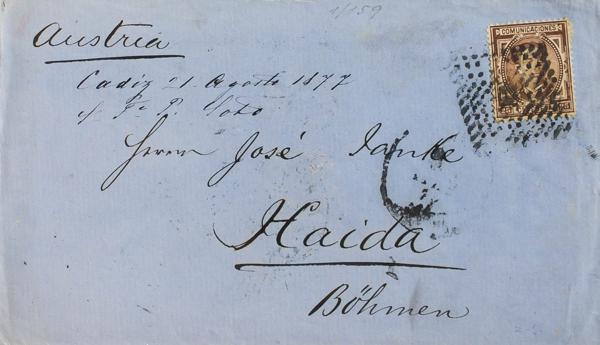 1/159
COMUNICACIONES
Austria
Cadiz 21 Agosto 1877
Fº P. Soto
Herrn José Janke
Haida
Böhmen